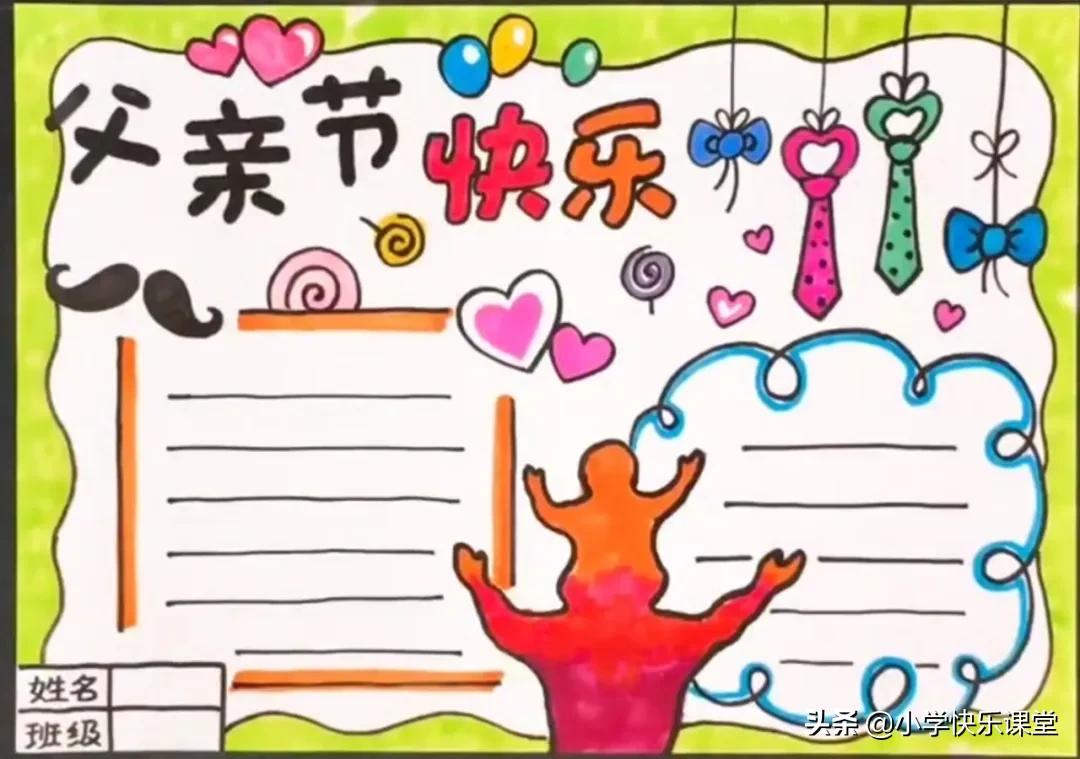 父亲节快乐
姓名
班级
头条 @小学快乐课堂